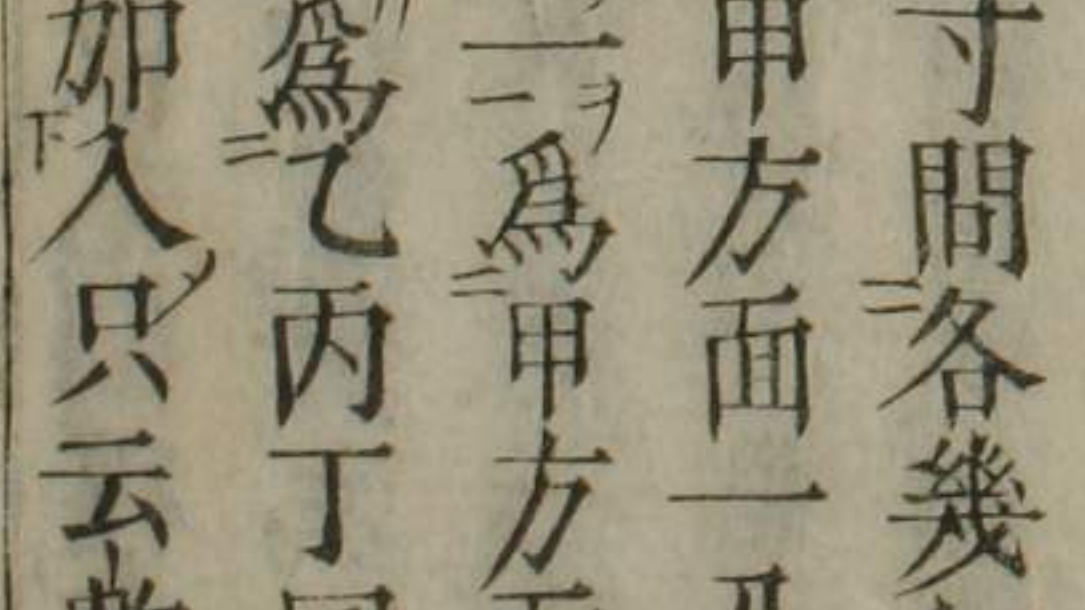 寸問各幾
甲方面一
一為甲方
為乙丙丁
加入只云